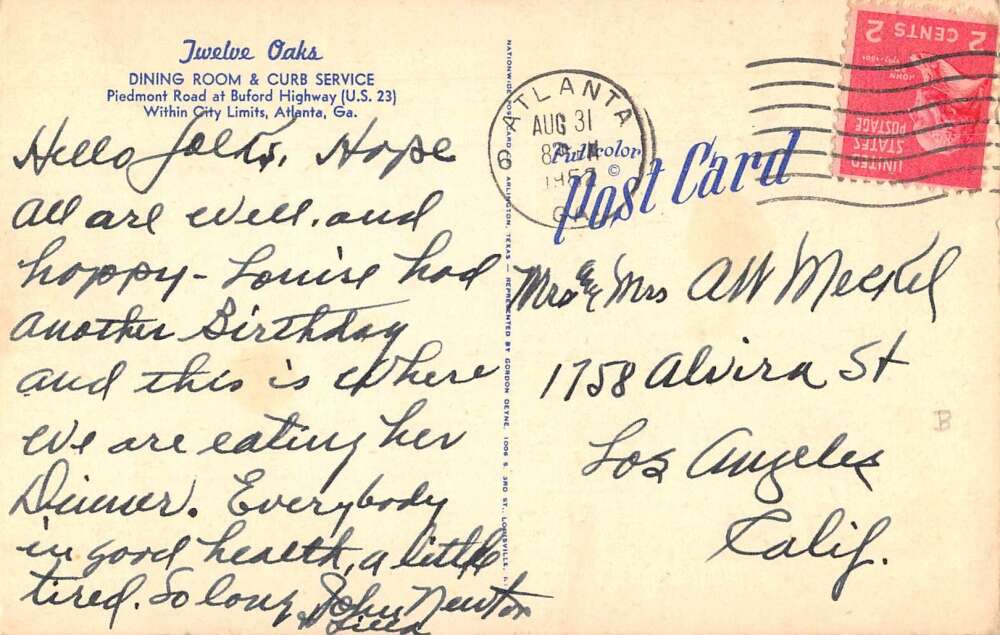 Twelve Oaks
DINING ROOM & CURB SERVICE
Piedmont Road at Buford Highway (U.S. 23)
Within City Limits, Atlanta, Ga.
Hello folks, Hope
all are well, and
happy - Louise had
another Birthday
and this is where
we are eating her
Dinner. Everybody
in good health, a little
tired. So long John Newton
ATLANTA
AUG 31
GA
Fullcolor
Post Card
©
2 CENTS 2
JOHN
UNITED
STATES
POSTAGE
Mr & Mrs AW Meckel
1758 Alvira St
Los Angeles
Calif.
B
NATIONWIDE POST CARD ARLINGTON, TEXAS — REPRESENTED BY GORDON DEYNE, 1006 S. 3RD ST., LOUISVILLE,